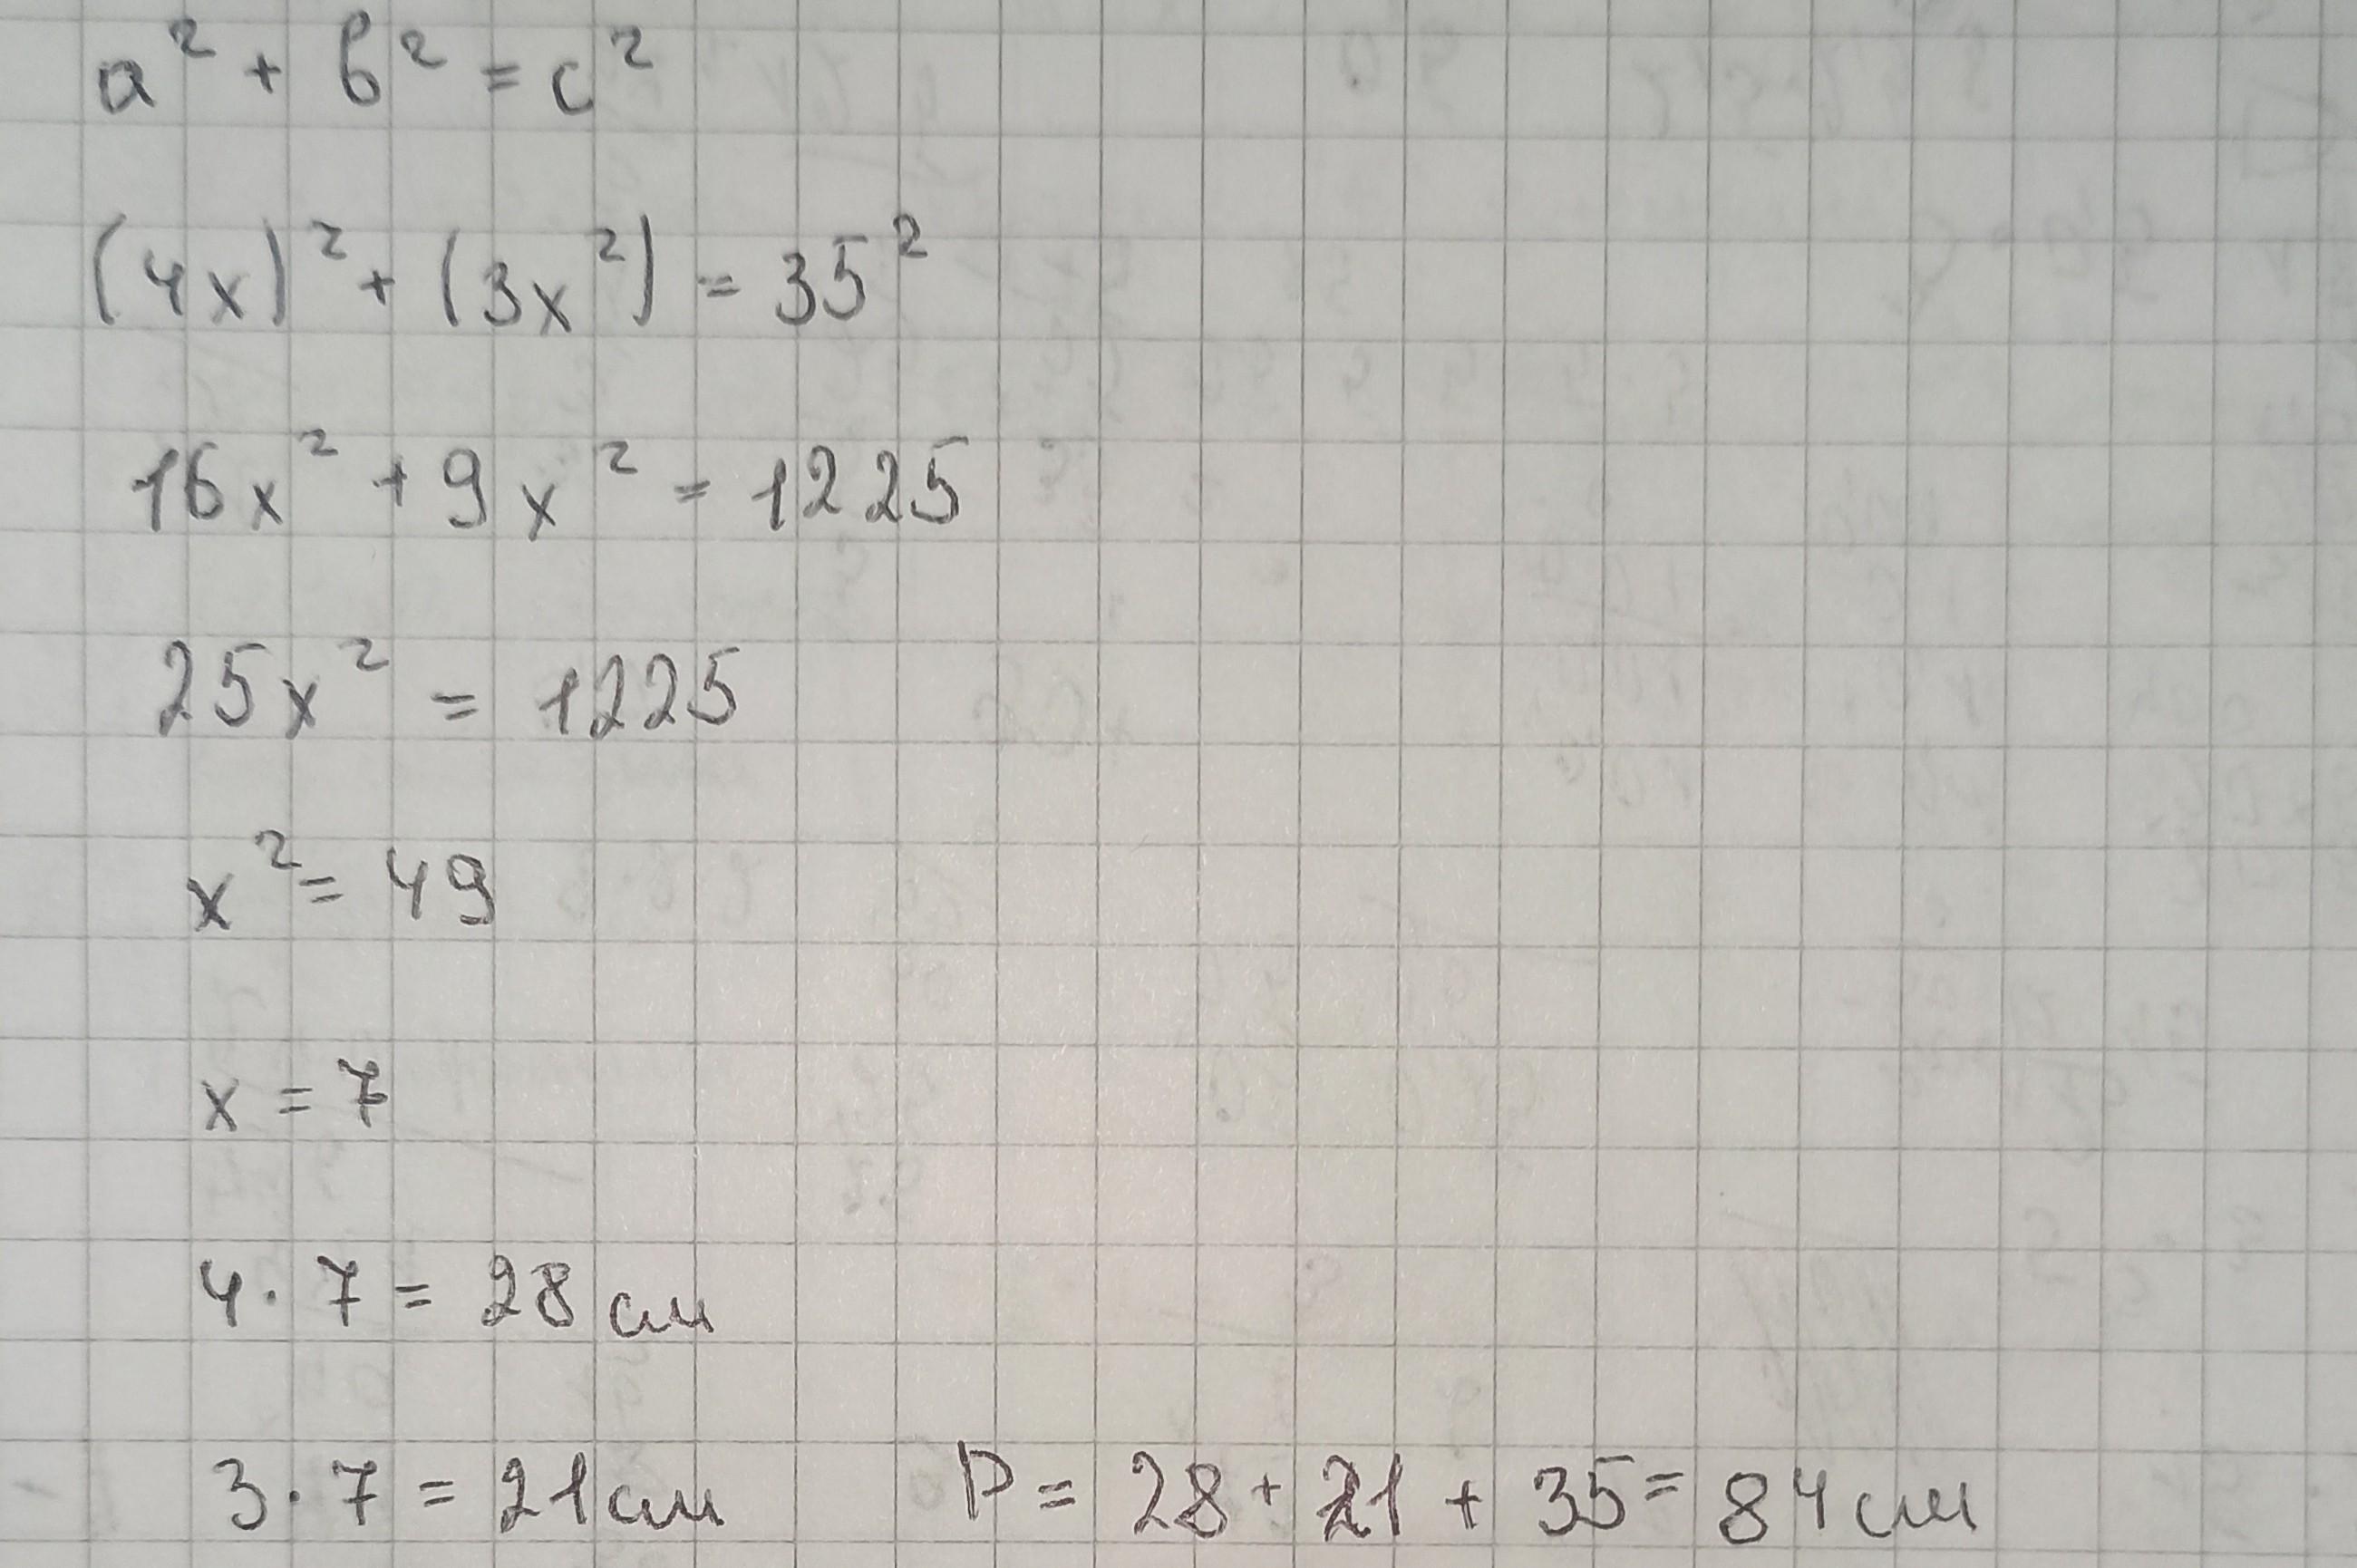 a² + b² = c²
(4x)² + (3x²) = 35²
16x² + 9x² = 1225
25x² = 1225
x² = 49
x = 7
4 · 7 = 28 см
3 · 7 = 21 см P = 28 + 21 + 35 = 84 см